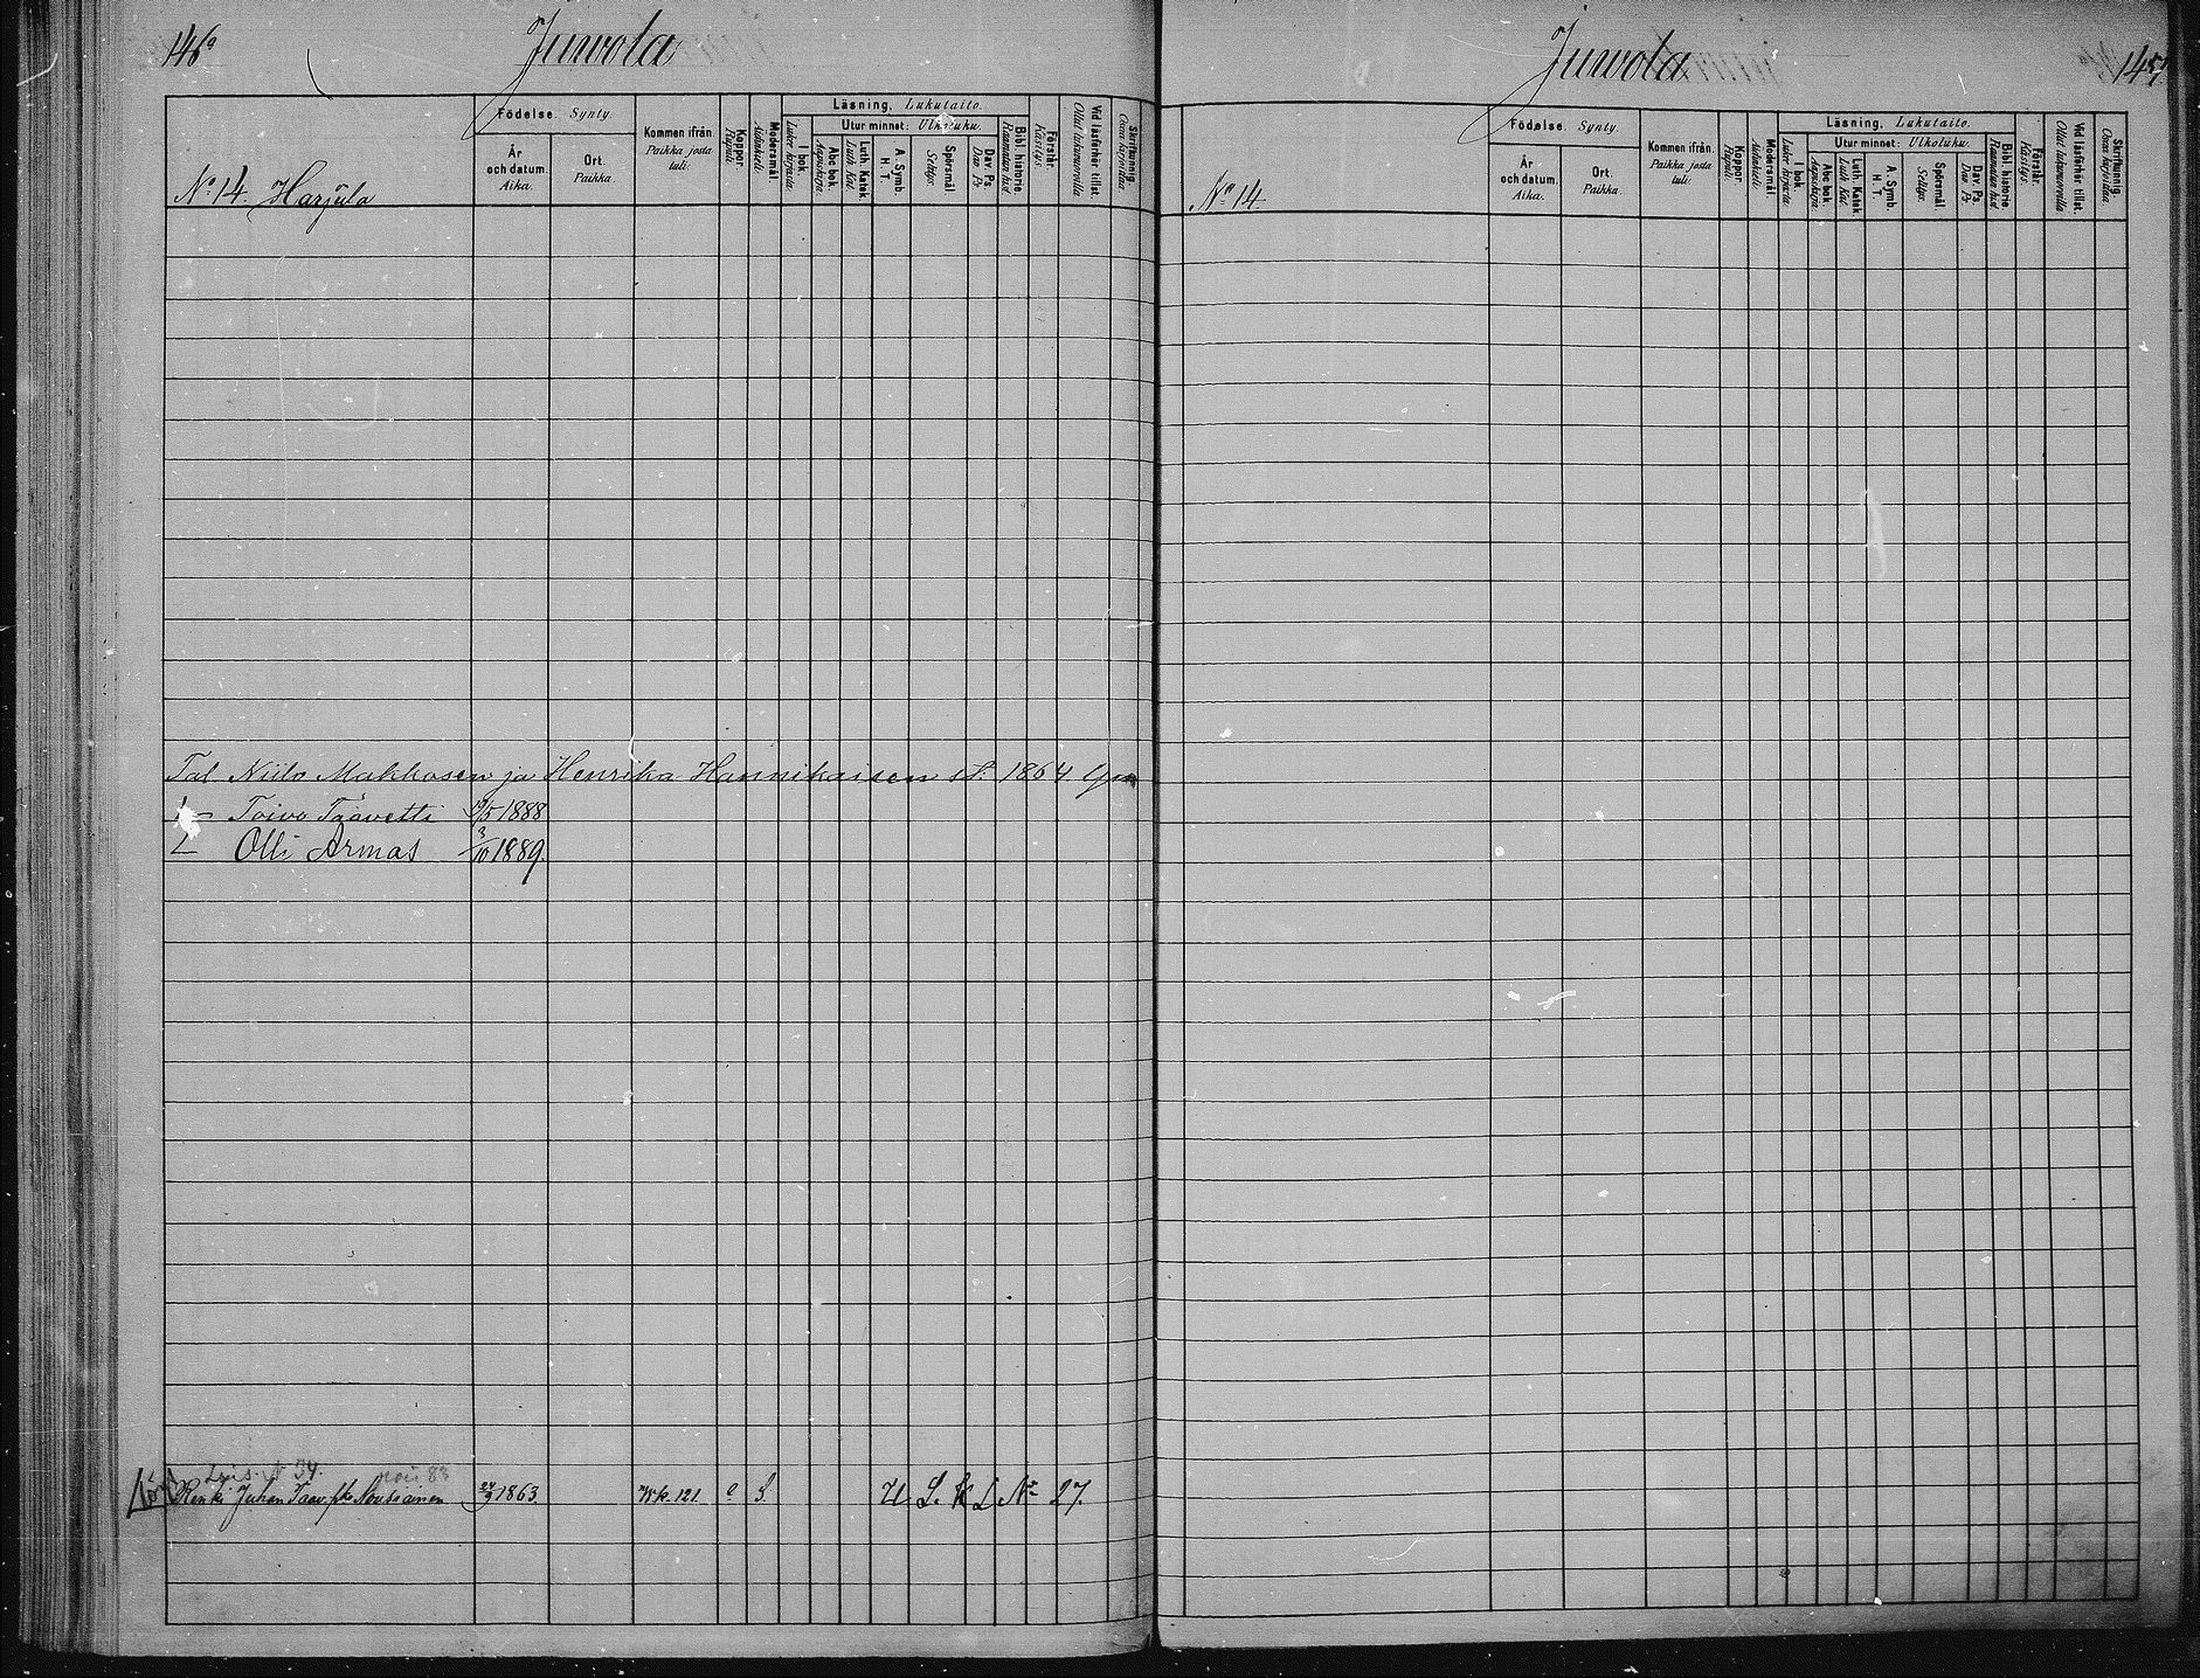 146
Juvola
No 14. Harjula
Födelse. Synty.
År och datum. Aika.
Ort. Paikka.
Kommen ifrån. Paikka josta tuli.
Koppor. Rupuli.
Modersmål. Äidinkieli.
Läsning, Lukutaito.
I bok. Lukee kirjasta.
Utur minnet: Ulkoluku.
Abc bok. Aapiskirja.
Luth. Katek. Luth. Kat.
A. Symb. H. T.
Spörsmål. Selitys.
Dav. Ps. Dav. Ps.
Bibl. historie. Raamatun hist.
Förstår. Käsitys.
Vid läsförhör tillst. Ollut lukuvuoroilla
Skrifkunnig. Osaa kirjoittaa
Tal. Niilo Makkosen ja Henrika Hannikaisen s. 1864
1 Toivo Taavetti /5 1888
2 Olli Armas 3/10 1889.
34.
Renki Juhan Taav. pk Nousiainen 9 1863. Wk. 121 S. No 27.
Juvola
145
No 14.
Födelse. Synty.
År och datum. Aika.
Ort. Paikka.
Kommen ifrån. Paikka josta tuli.
Koppor. Rupuli.
Modersmål. Äidinkieli.
Läsning, Lukutaito.
I bok. Lukee kirjasta.
Utur minnet: Ulkoluku.
Abc bok. Aapiskirja.
Luth. Katek. Luth. Kat.
A. Symb. H. T.
Spörsmål. Selitys.
Dav. Ps. Dav. Ps.
Bibl. historie. Raamatun hist.
Förstår. Käsitys.
Vid läsförhör tillst. Ollut lukuvuoroilla
Skrifkunnig. Osaa kirjoittaa.